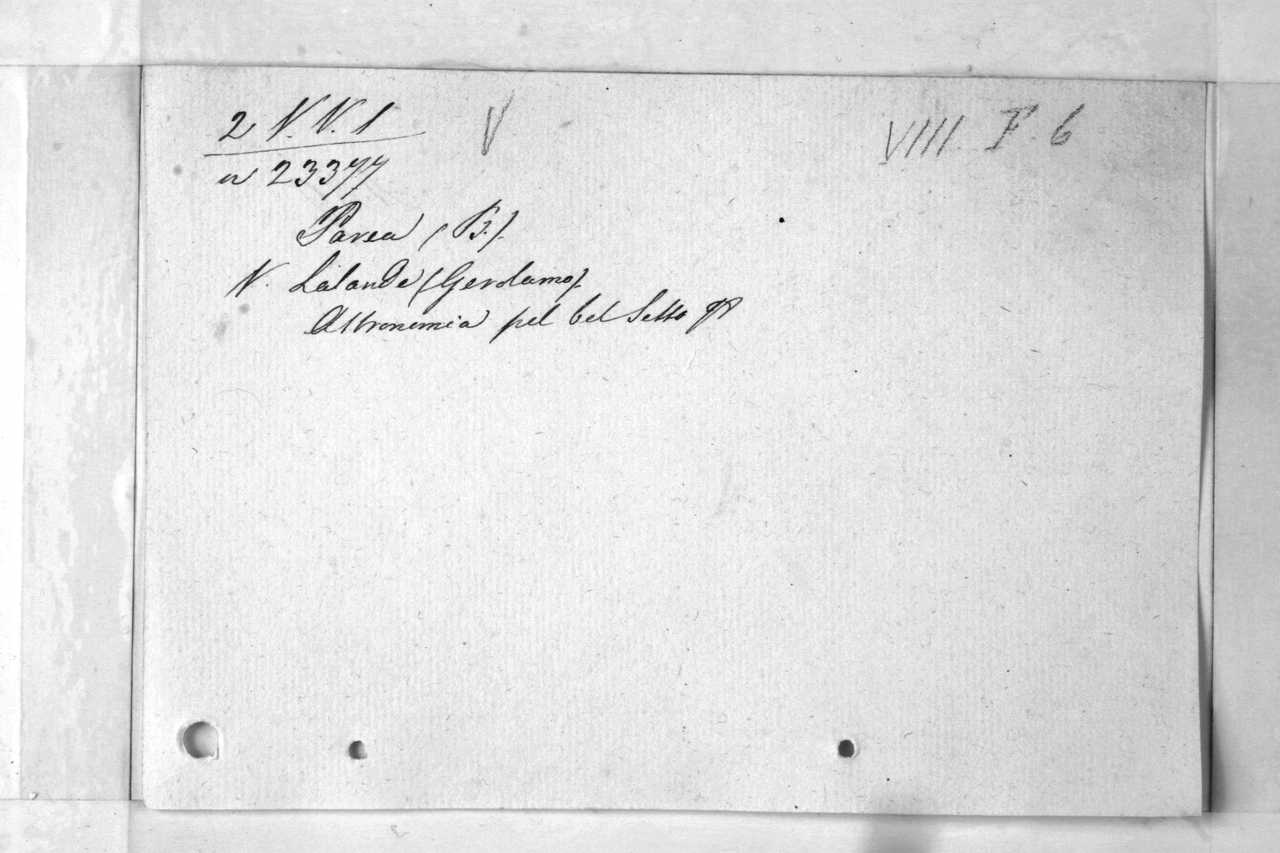 2 N. V. 1 V VIII. F. 6
n 23377
Parea (B.).
N. Lalande (Gerolamo).
Astronomia pel bel Sesso